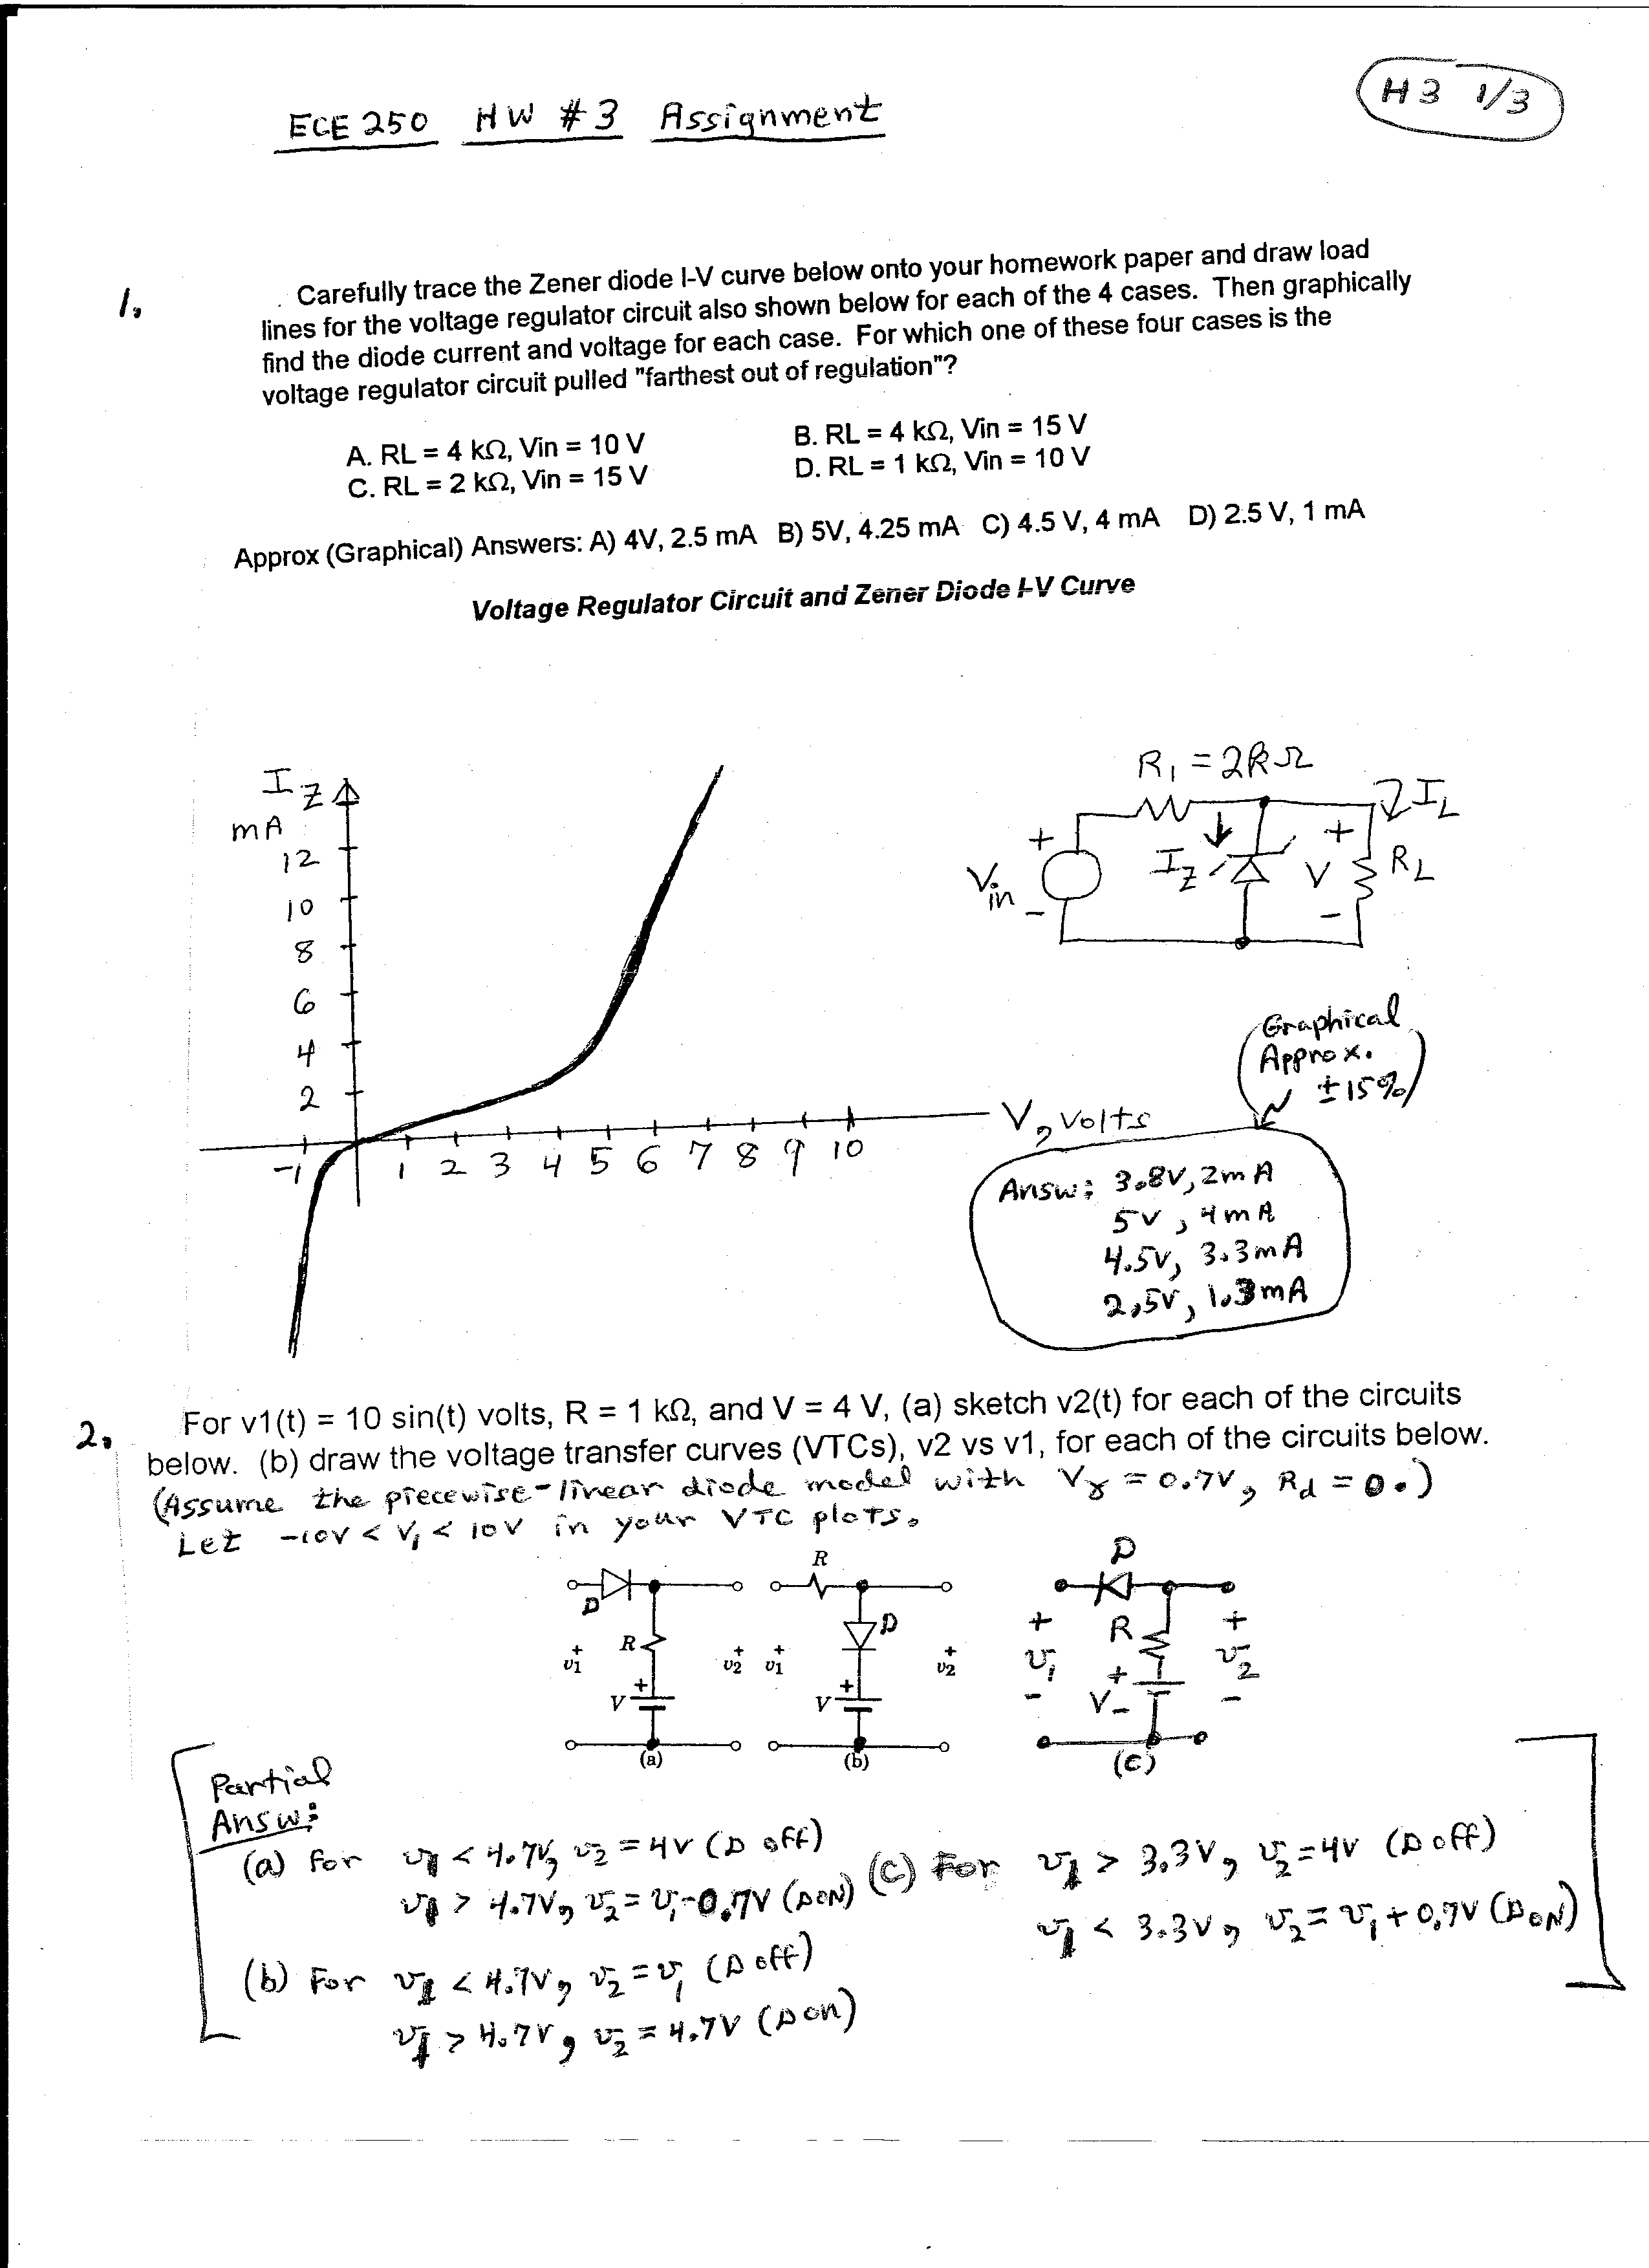 H3 1/3
ECE 250 HW #3 Assignment
1.
Carefully trace the Zener diode I-V curve below onto your homework paper and draw load
lines for the voltage regulator circuit also shown below for each of the 4 cases. Then graphically
find the diode current and voltage for each case. For which one of these four cases is the
voltage regulator circuit pulled "farthest out of regulation"?
A. RL = 4 kΩ, Vin = 10 V B. RL = 4 kΩ, Vin = 15 V
C. RL = 2 kΩ, Vin = 15 V D. RL = 1 kΩ, Vin = 10 V
Approx (Graphical) Answers: A) 4V, 2.5 mA B) 5V, 4.25 mA C) 4.5 V, 4 mA D) 2.5 V, 1 mA
Voltage Regulator Circuit and Zener Diode I-V Curve
IZ
mA
12
10
8
6
4
2
-1 1 2 3 4 5 6 7 8 9 10
V, volts
R1 = 2kΩ
IL
+ IZ + RL
Vin V
- -
Graphical
Approx.
±15%
Answ: 3.8V, 2mA
5V, 4mA
4.5V, 3.3mA
2.5V, 1.3mA
2.
For v1(t) = 10 sin(t) volts, R = 1 kΩ, and V = 4 V, (a) sketch v2(t) for each of the circuits
below. (b) draw the voltage transfer curves (VTCs), v2 vs v1, for each of the circuits below.
(Assume the piecewise-linear diode model with Vγ = 0.7V, Rd = 0.)
Let -10V < V1 < 10V in your VTC plots.
D R + v1 + v2 V + (a)
R D + v1 + v2 V + (b)
D R + v1 - + v2 - + V - (c)
Partial
Answ:
(a) For v1 < 4.7V, v2 = 4V (D off)
v1 > 4.7V, v2 = v1-0.7V (D ON)
(b) For v1 < 4.7V, v2 = v1 (D off)
v1 > 4.7V, v2 = 4.7V (D on)
(c) For v1 > 3.3V, v2 = 4V (D off)
v1 < 3.3V, v2 = v1 + 0.7V (D ON)